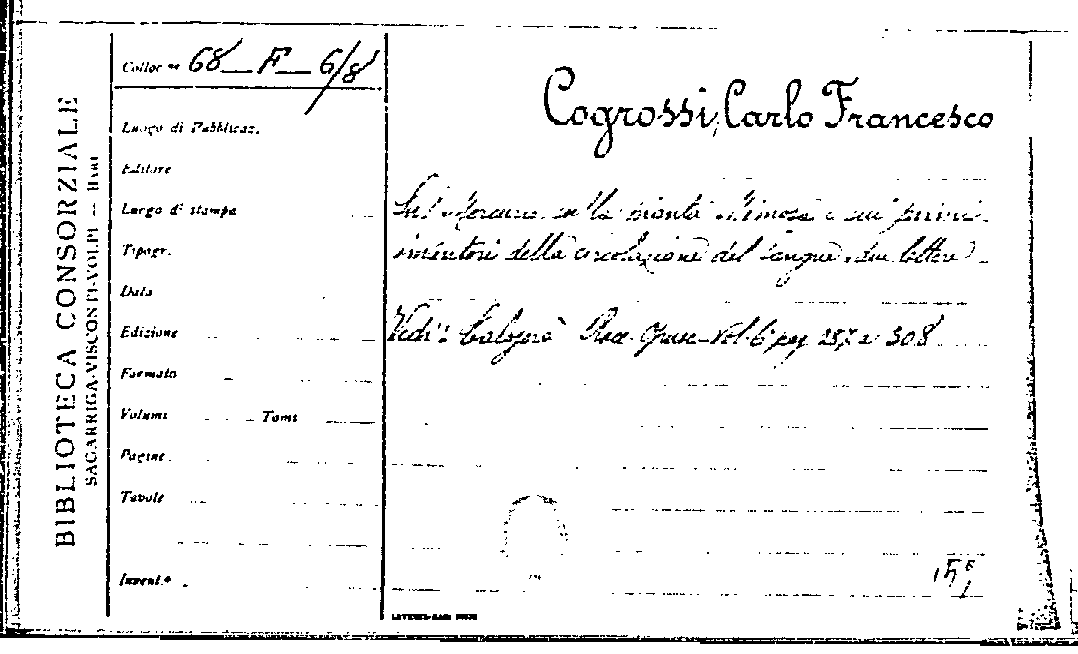 BIBLIOTECA CONSORZIALE
SAGARRIGA-VISCONTI-VOLPI — BARI
Colloc.ne 68 F 6/8
Luogo di Pubblicaz.
Editore
Luogo di stampa
Tipogr.
Data
Edizione
Formato
Volumi Tomi
Pagine
Tavole
Invent.o
Cogrossi, Carlo Francesco
Sul Mercurio, sulla pianta Mimosa e sui primi
inventori della circolazione del sangue, due lettere
Vedi: Calogerà Rac. Opusc. Vol. 6 pag 257 a 308